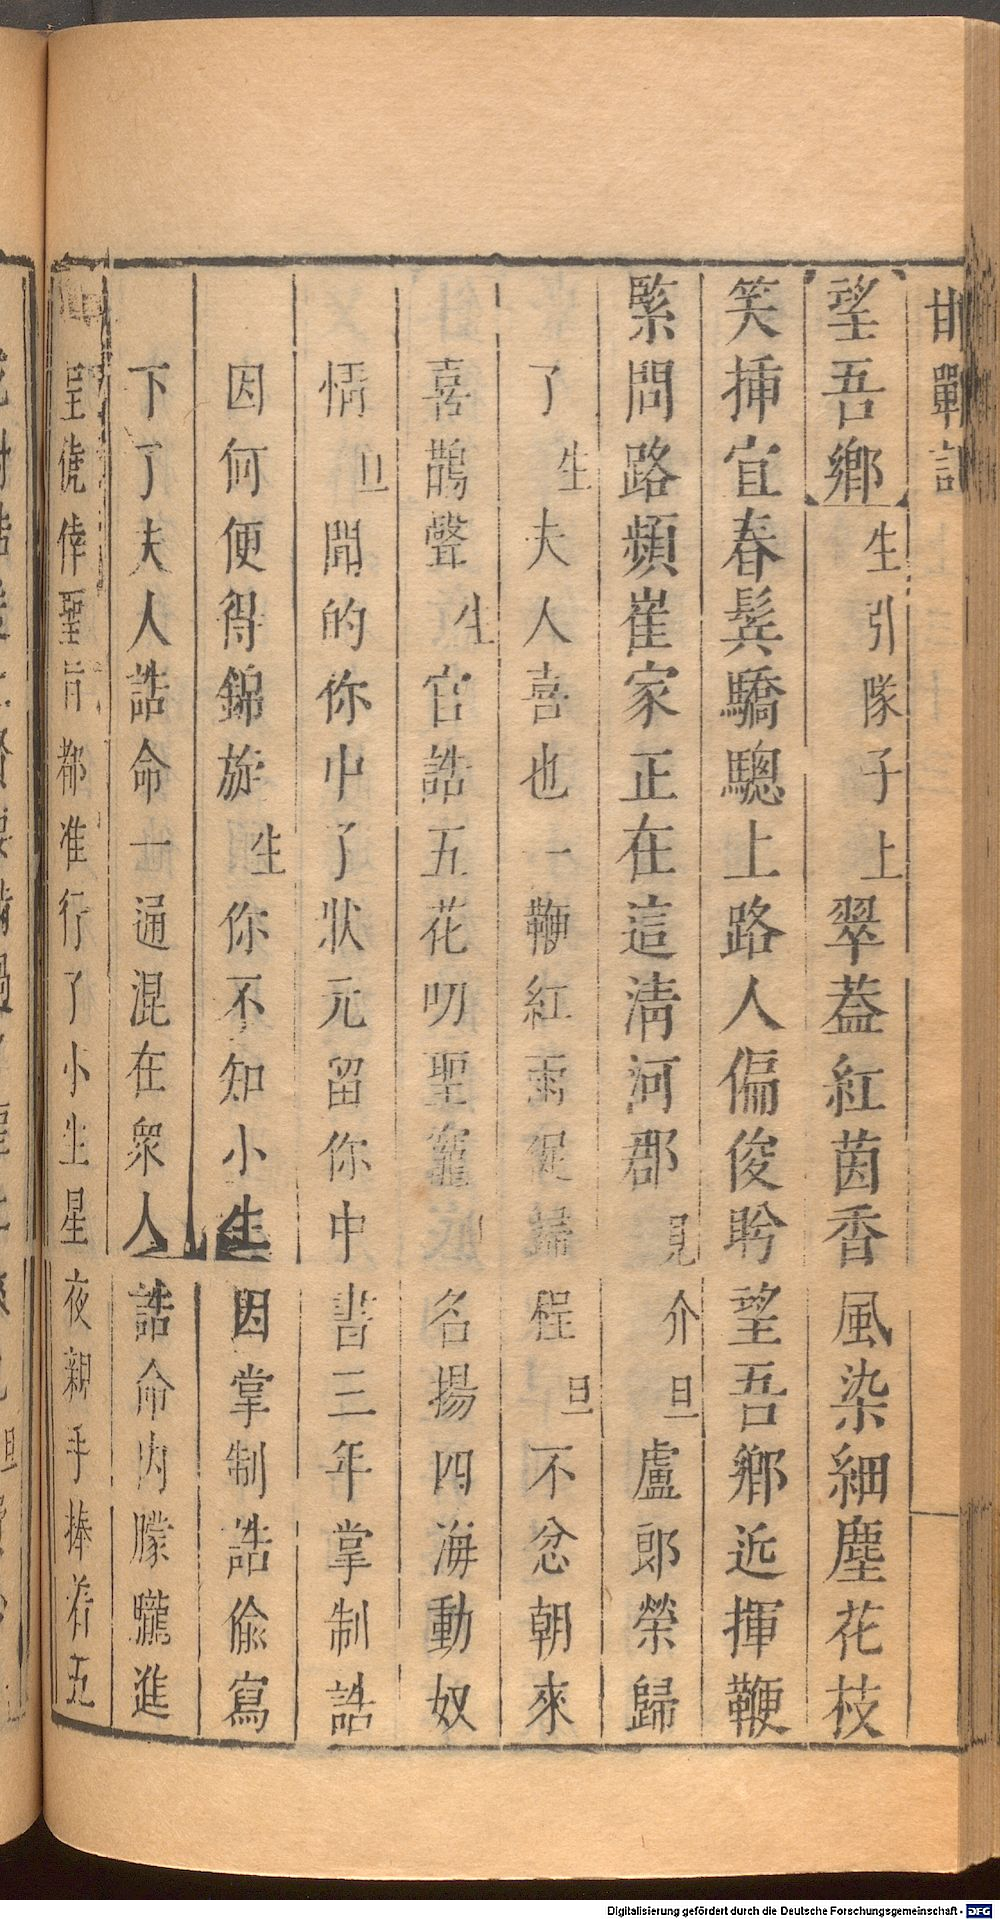 邯鄲記
望吾鄉生引隊子上翠葢紅茵香風染細塵花枝
笑揷宜春髩驕驄上路人偏俊盻望吾鄉近揮鞭
緊問路頻崔家正在這清河郡見介旦盧郎榮歸
了生夫人喜也一鞭紅雨促歸程旦不忿朝來
喜鵲聲生官誥五花叨聖寵名揚四海動奴
情旦聞的你中了狀元留你中書三年掌制誥
因何便得錦旋生你不知小生因掌制誥偷寫
下了夫人誥命一通混在衆人誥命内朦朧進
呈僥倖聖旨都准行了小生星夜親手捧着五
Digitalisierung gefördert durch die Deutsche Forschungsgemeinschaft - DFG